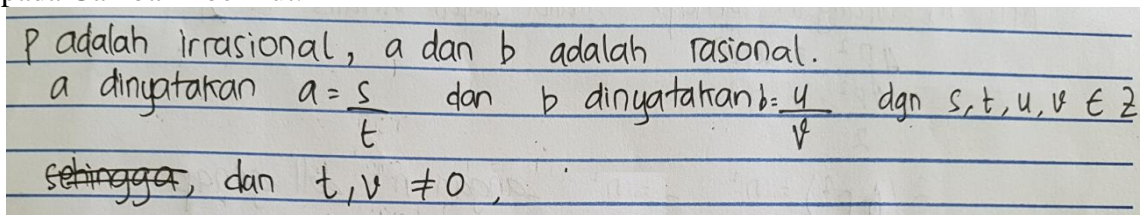 P adalah irrasional, a dan b adalah rasional.
a dinyatakan a = s/t dan b dinyatakan b = u/v dgn s, t, u, v ∈ Z
sehingga, dan t, v ≠ 0,